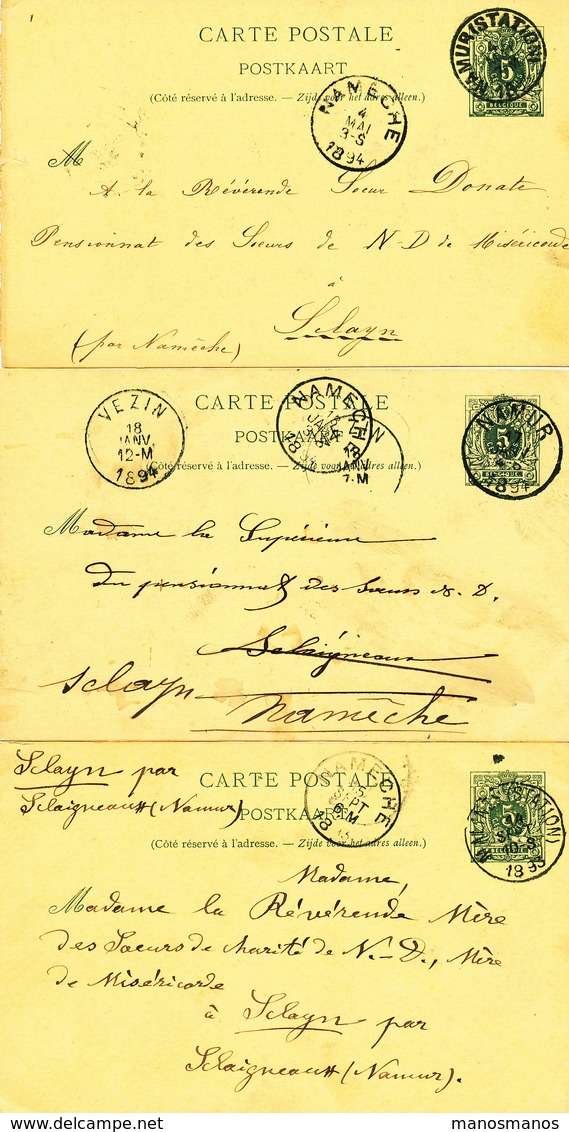 CARTE POSTALE
POSTKAART
(Côté réservé à l'adresse. — Zijde voor het adres alleen.)
NAMUR (STATION)
5
BELGIQUE
NAMECHE
4
MAI
3-S
1894
M
A la Révérende Soeur Donate
Pensionnat des Soeurs de N-D de Miséricorde
à
Sclayn
(par Namêche)
CARTE POSTALE
POSTKAART
(Côté réservé à l'adresse. — Zijde voor het adres alleen.)
VEZIN
18
JANV.
12-M
1894
NAMECHE
NAMUR
1894
Madame la Supérieure
du pensionnat des Soeurs N. D.
Sclaigneaux
Sclayn
Namêche
Sclayn par
Sclaigneaux (Namur)
CARTE POSTALE
POSTKAART
(Côté réservé à l'adresse. — Zijde voor het adres alleen.)
NAMECHE
SEPT
(STATION)
10-S
1893
Madame,
Madame la Révérende Mère
des Soeurs de charité de N.-D., Mère
de Miséricorde
à Sclayn par
Sclaigneaux (Namur).
manosmanos